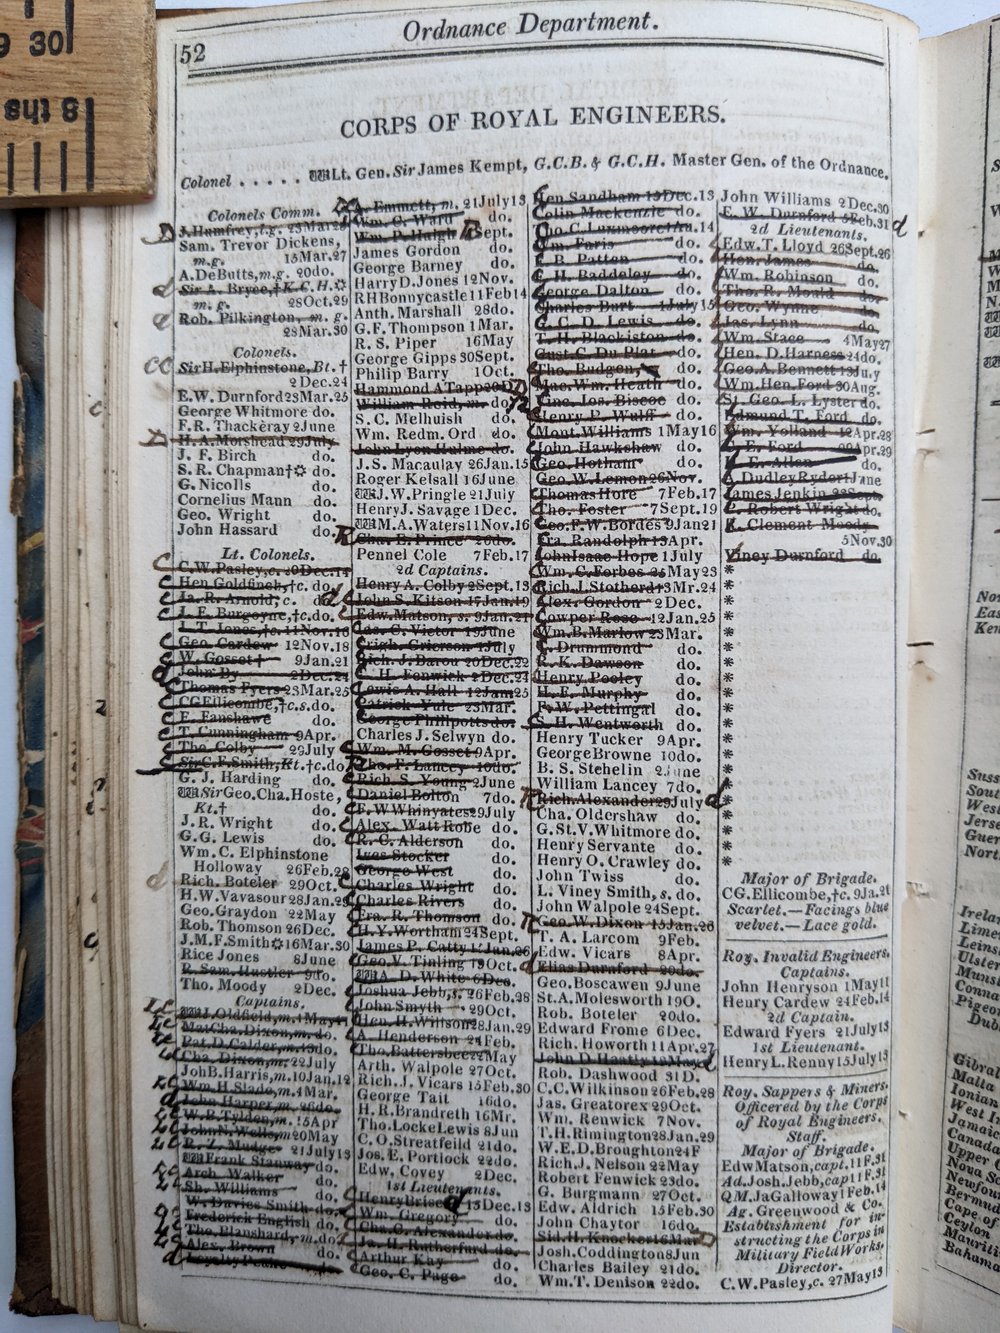 52
Ordnance Department.
CORPS OF ROYAL ENGINEERS.
Colonel . . . . . Lt. Gen. Sir James Kempt, G.C.B. & G.C.H. Master Gen. of the Ordnance.
Colonels Comm.
J. Humfrey, l.g. 23Mar.
Sam. Trevor Dickens,
m.g. 15Mar.27
A. DeButts, m.g. 20do.
Sir A. Bryce, † K.C.H.
m.g. 28Oct.29
Rob. Pilkington, m. g.
28Mar.30
Colonels.
Sir H. Elphinstone, Bt. †
2Dec.24
E.W. Durnford 23Mar.25
George Whitmore do.
F.R. Thackeray 2June
H.A. Morshead 29July
J. F. Birch do.
S. R. Chapman† do.
G. Nicolls do.
Cornelius Mann do.
Geo. Wright do.
John Hassard do.
Lt. Colonels.
C.W. Pasley, c. 20Dec.14
Hen Goldfinch, †c. do.
Ja. R. Arnold, c. do.
J. F. Burgoyne, †c. do.
J. T. Jones, †c. 11Nov.16
Geo. Cardew 12Nov.18
W. Gosset † 9Jan.21
John By 2Dec.24
Thomas Fyers 23Mar.25
CGEllicombe, †c.s. do.
E. Fanshawe do.
T. Cunningham 9Apr.
Tho. Colby 29July
Sir C.F. Smith, Kt. †c. do.
G. J. Harding do.
Sir Geo. Cha. Hoste,
Kt. † do.
J.R. Wright do.
G.G. Lewis do.
Wm. C. Elphinstone
Holloway 26Feb.28
Rich. Boteler 29Oct.
H.W. Vavasour 28Jan.29
Geo. Graydon 22May
Rob. Thomson 26Dec.
J.M.F. Smith 16Mar.30
Rice Jones 8June
R. Sam. Hustler 9do.
Tho. Moody 2Dec.
Captains.
J. Oldfield, m. 1May11
Mat Cha. Dixon, m. do.
Pat. D. Calder, m. 13do.
Cha. Dixon, m. 22July
JohB. Harris, m. 10Jan.12
Wm. H. Slade, m. 4Mar.
John Harper, m. 26do.
W. B. Tylden, m. 15Apr
John N. Wells, m 20May
R. Z. Mudge 21July13
Frank Stanway do.
Arch. Walker do.
Sh. Williams do.
W. Davies Smith do.
Frederick English do.
Tho. Blanshard, m. do.
Alex. Brown do.
Loyalty Peake do.
A. Emmett, m. 21July13
Wm. C. Ward do.
Wm. P. Haigh Sept.
James Gordon do.
George Barney do.
Harry D. Jones 12Nov.
RH Bonnycastle 11Feb14
Anth. Marshall 28do.
G.F. Thompson 1Mar.
R. S. Piper 16May
George Gipps 30Sept.
Philip Barry 1Oct.
Hammond A Tapp 20D
William Reid, m. do.
S. C. Melhuish do.
Wm. Redm. Ord do.
John Lyon Hulme do.
J.S. Macaulay 26Jan.15
Roger Kelsall 16June
J.W. Pringle 21July
Henry J. Savage 1Dec.
M.A. Waters 11Nov.16
Cha. E. Prince 26do.
Pennel Cole 7Feb.17
2d Captains.
Henry A. Colby 2Sept.13
John S. Kitson 17Jan.19
Edw. Matson, s. 9Jan.21
Jas. C. Victor 19June
Leigh. Grierson 1July
Rich. J. Baron 20Dec.22
C. H. Fenwick 2Dec.24
Lewis A. Hall 12Jan25
Patrick Yule 23Mar.
George Phillpotts do.
Charles J. Selwyn do.
Wm. M. Gosset 9Apr.
Tho. F. Lancey 10do.
Rich. S. Young 2June
Daniel Bolton 7do.
F.W Whinyates 29July
Alex. Watt Robe do.
R. C. Alderson do.
Ives Stocker
George West do.
Charles Wright do.
Charles Rivers do.
Fra. R. Thomson do.
H.Y. Wortham 24Sept.
James P. Catty 1Jan.26
Geo. V. Tinling 19Oct.
A. D. White 6Dec.
Joshua Jebb, s. 26Feb.28
John Smyth 29Oct.
Hen. H. Willson 28Jan.29
A. Henderson 24Feb.
Tho. Battersbee 22May
Arth. Walpole 27Oct.
Rich. J. Vicars 15Feb.30
George Tait 16do.
H.R. Brandreth 16Mr.
Tho. Locke Lewis 8Jun
C.O. Streatfeild 21do.
Jos. E. Portlock 22do.
Edw. Covey 2Dec.
1st Lieutenants.
Henry Brisc 13Dec.13
Wm. Gregory do.
Cha. C. Alexander do.
Ja. H. Rutherfurd do.
Arthur Kay do.
Geo. C. Page do.
Hen Sandham 13Dec.13
Colin Mackenzie do.
Tho C. Luxmoore 1Au.14
Wm. Faris do.
F. B. Patten do.
H. Baddeley do.
George Dalton do.
Charles Burt 1July15
G. C. D. Lewis do.
T. H. Blackiston do.
Gust. C. Du Plat do.
Tho. Budgen, do.
Mac. Wm. Heath do.
Vinc. Jos. Biscoe do.
Henry R. Wulff do.
Mont. Williams 1May16
John Hawkshaw do.
Geo. Hotham do.
Geo. W. Lemon 26Nov.
Thomas Hore 7Feb.17
Tho. Foster 7Sept.19
Geo. F.W. Bordes 9Jan21
Fra. Randolph 13Apr.
John Isaac Hope 1July
Wm. C. Forbes 25May23
Rich. J. Stotherd 13Mr.24
Alex. Gordon 2Dec.
Cowper Rose 12Jan.25
Wm. B. Marlow 23Mar.
C. Drummond do.
R. K. Dawson do.
Henry Pooley do.
H. E. Murphy do.
F. W. Pettingal do.
S. H. Wentworth do.
Henry Tucker 9Apr.
George Browne 10do.
B. S. Stehelin 2June
William Lancey 7do.
Rich. Alexander 29July
Cha. Oldershaw do.
G. St. V. Whitmore do.
Henry Servante do.
Henry O. Crawley do.
John Twiss do.
L. Viney Smith, s. do.
John Walpole 24Sept.
Geo. W. Dixon 15Jan.26
T. A. Larcom 9Feb.
Edw. Vicars 8Apr.
Elias Durnford 20do.
Geo. Boscawen 9June
St. A. Molesworth 19O.
Rob. Boteler 20do.
Edward Frome 6Dec.
Rich. Howorth 11Apr.27
John D Hastly 12May
Rob. Dashwood 31D.
C.C. Wilkinson 26Feb.28
Jas. Greatorex 29Oct.
Wm. Renwick 7Nov.
T.H. Rimington 28Jan.29
W.E.D. Broughton 24F
Rich. J. Nelson 22May
Robert Fenwick 23do.
G. Burgmann 27Oct.
Edw. Aldrich 15Feb.30
John Chaytor 16do.
Sid. H. Knocker 16Mar
Josh. Coddington 8Jun
Charles Bailey 21do.
Wm. T. Denison 22do.
John Williams 2Dec.30
E. W. Durnford 5Feb.31
2d Lieutenants.
Edw. T. Lloyd 26Sept.26
Hen. James do.
Wm. Robinson do.
Tho. R. Mould do.
Geo. Wynne do.
Jas. Lynn do.
Wm. Stace 4May27
Hen. D. Harness 24do.
Geo. A. Bennett 13July
Wm. Hen. Ford 30Aug.
St. Geo. L. Lyster do.
Edmund T. Ford do.
Wm. Yolland 12Apr.28
J. E. Ford 29Apr.29
E. Allen do.
A Dudley Ryder 1June
James Jenkin 22Sept.
C. Robert Wright do.
K. Clement Moody
5Nov.30
Viney Durnford do.
*
*
*
*
*
*
*
*
*
*
*
*
*
*
*
*
*
*
*
*
Major of Brigade.
CG. Ellicombe, †c. 9Ja.21
Scarlet.—Facings blue
velvet.—Lace gold.
Roy. Invalid Engineers.
Captains.
John Henryson 1May11
Henry Cardew 24Feb.14
2d Captain.
Edward Fyers 21July13
1st Lieutenant.
Henry L. Renny 15July13
Roy. Sappers & Miners.
Officered by the Corps
of Royal Engineers.
Staff.
Major of Brigade.
Edw Matson, capt. 11F.31
Ad. Josh. Jebb, cap 11F.31
QM. Ja Galloway 1Feb.14
Ag. Greenwood & Co.
Establishment for in-
structing the Corps in
Military Field Works.
Director.
C.W. Pasley, c. 27May13